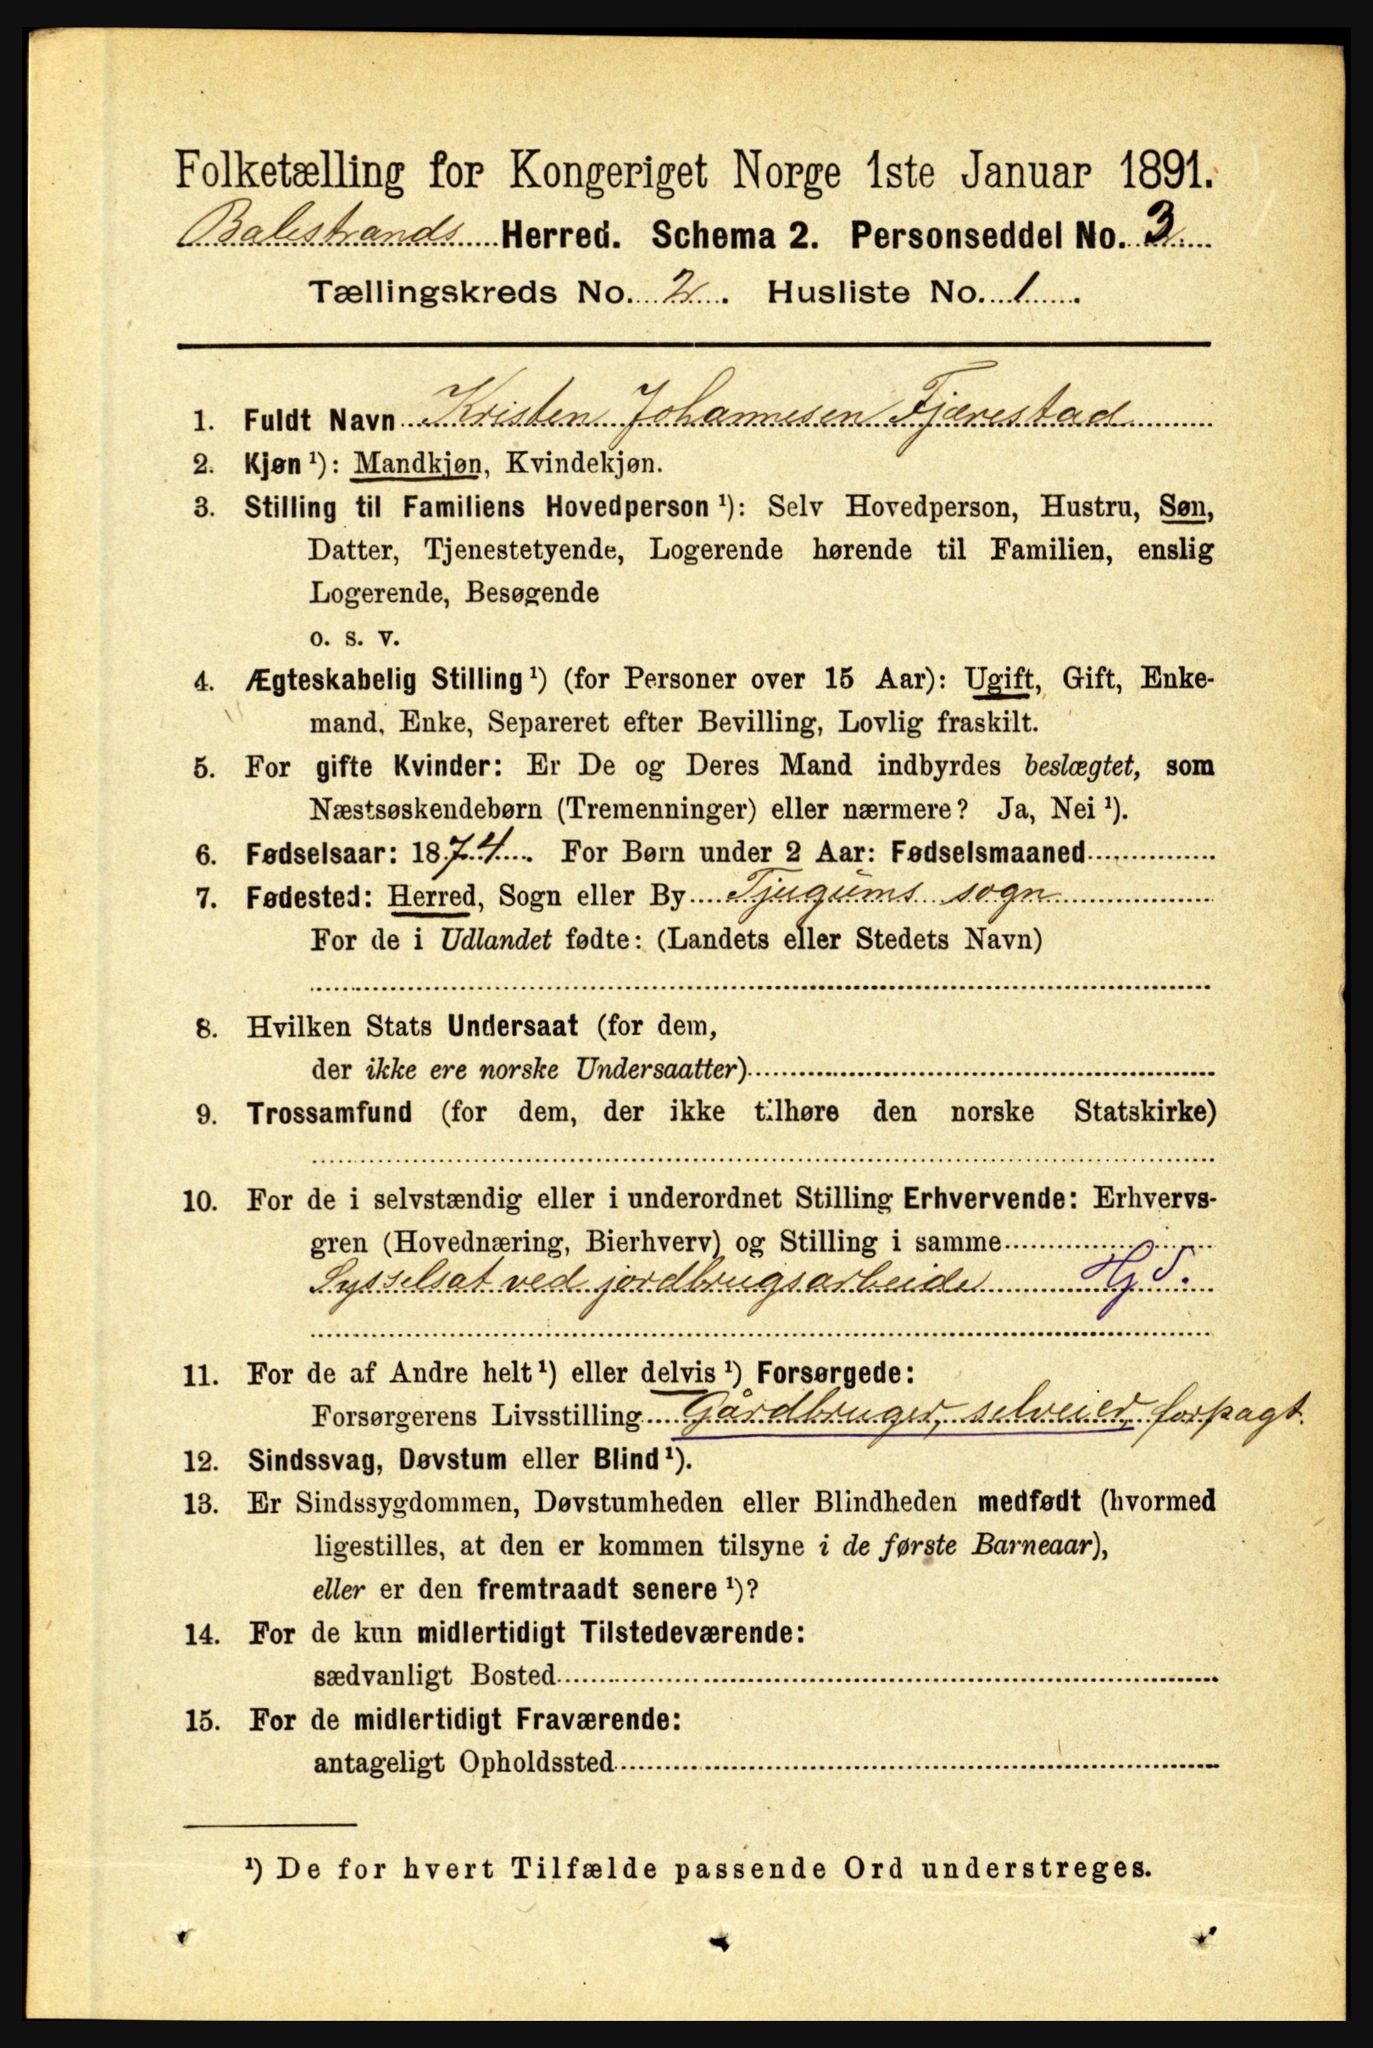 Folketælling for Kongeriget Norge 1ste Januar 1891.
Balestrands Herred. Schema 2. Personseddel No. 3
Tællingskreds No. 2. Husliste No. 1.
1. Fuldt Navn Kristen Johannesen Fjærestad
2. Kjøn ¹): Mandkjøn, Kvindekjøn.
3. Stilling til Familiens Hovedperson ¹): Selv Hovedperson, Hustru, Søn,
Datter, Tjenestetyende, Logerende hørende til Familien, enslig
Logerende, Besøgende
o. s. v.
4. Ægteskabelig Stilling ¹) (for Personer over 15 Aar): Ugift, Gift, Enke-
mand, Enke, Separeret efter Bevilling, Lovlig fraskilt.
5. For gifte Kvinder: Er De og Deres Mand indbyrdes beslægtet, som
Næstsøskendebørn (Tremenninger) eller nærmere? Ja, Nei ¹).
6. Fødselsaar: 1874. For Børn under 2 Aar: Fødselsmaaned
7. Fødested: Herred, Sogn eller By Tjugums sogn
For de i Udlandet fødte: (Landets eller Stedets Navn)
8. Hvilken Stats Undersaat (for dem,
der ikke ere norske Undersaatter)
9. Trossamfund (for dem, der ikke tilhøre den norske Statskirke)
10. For de i selvstændig eller i underordnet Stilling Erhvervende: Erhvervs-
gren (Hovednæring, Bierhverv) og Stilling i samme
Sysselsat ved jordbrugsarbeide Hj S.
11. For de af Andre helt ¹) eller delvis ¹) Forsørgede:
Forsørgerens Livsstilling Gårdbruger, selveier, forpagt.
12. Sindssvag, Døvstum eller Blind ¹).
13. Er Sindssygdommen, Døvstumheden eller Blindheden medfødt (hvormed
ligestilles, at den er kommen tilsyne i de første Barneaar),
eller er den fremtraadt senere ¹)?
14. For de kun midlertidigt Tilstedeværende:
sædvanligt Bosted
15. For de midlertidigt Fraværende:
antageligt Opholdssted
¹) De for hvert Tilfælde passende Ord understreges.